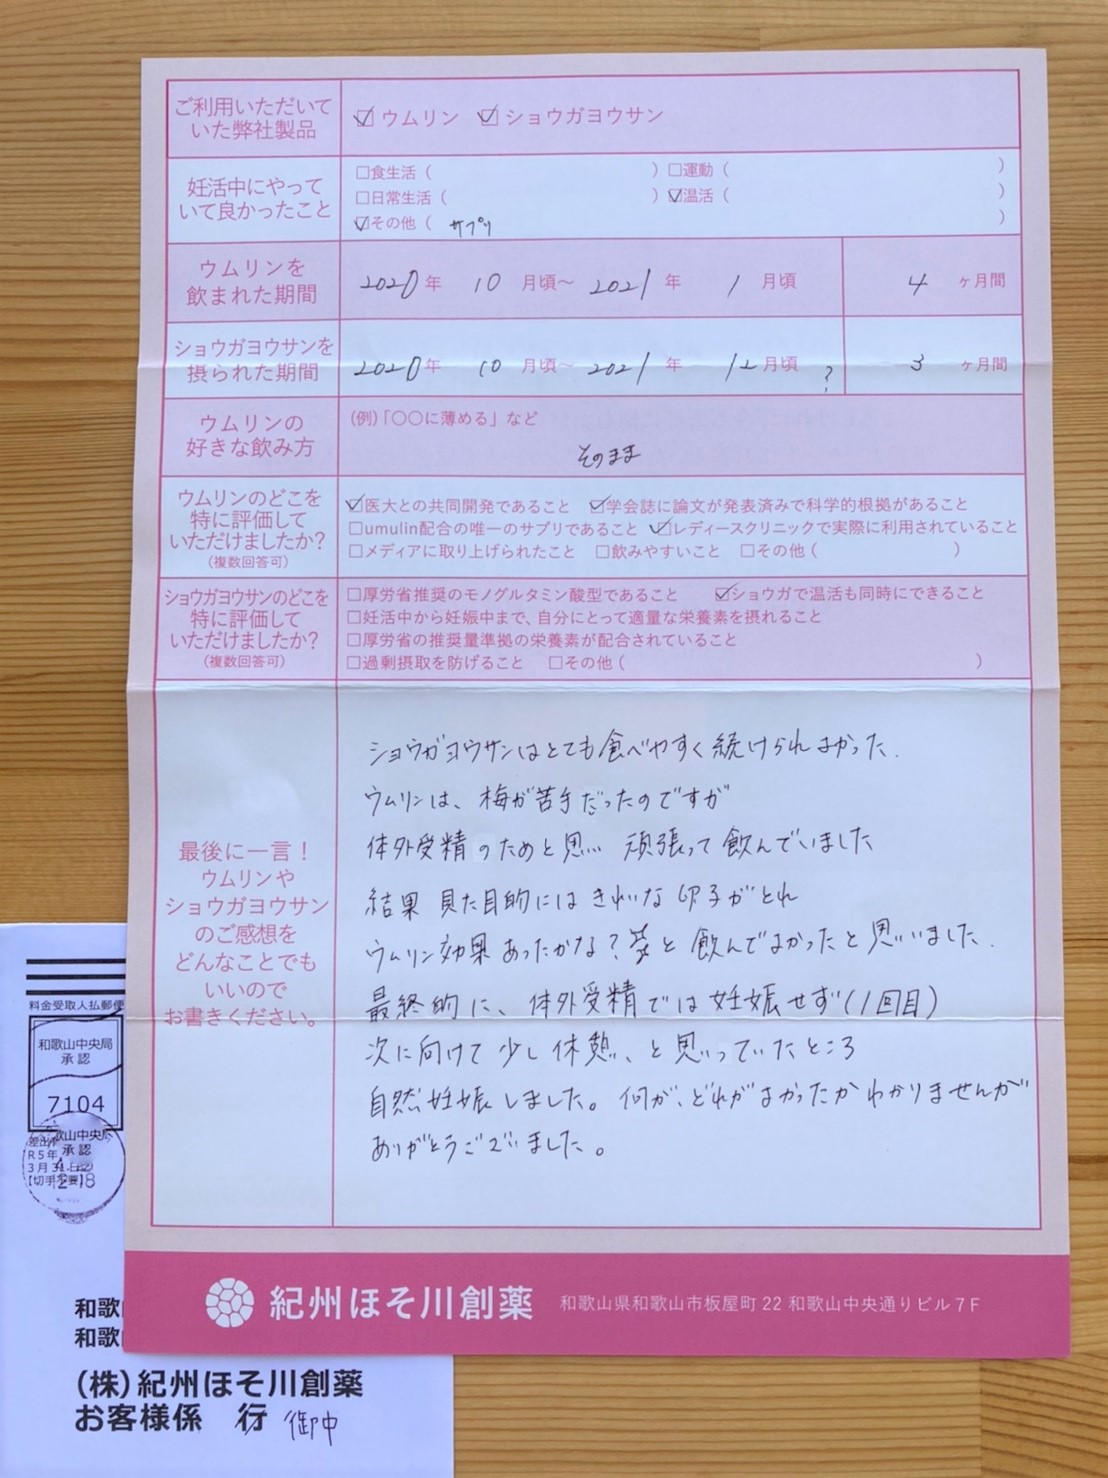 ご利用いただいて
いた弊社製品
☑ウムリン ☑ショウガヨウサン
妊活中にやって
いて良かったこと
□食生活（ ）□運動（ ）
□日常生活（ ）☑温活（ ）
☑その他（ サプリ ）
ウムリンを
飲まれた期間
2020年 10月頃～2021年 1月頃
4ヶ月間
ショウガヨウサンを
摂られた期間
2020年 10月頃～2021年 12月頃 ?
3ヶ月間
ウムリンの
好きな飲み方
(例)「〇〇に薄める」など
そのまま
ウムリンのどこを
特に評価して
いただけましたか?
(複数回答可)
☑医大との共同開発であること ☑学会誌に論文が発表済みで科学的根拠があること
□umulin配合の唯一のサプリであること ☑レディースクリニックで実際に利用されていること
□メディアに取り上げられたこと □飲みやすいこと □その他（ ）
ショウガヨウサンのどこを
特に評価して
いただけましたか?
(複数回答可)
□厚労省推奨のモノグルタミン酸型であること ☑ショウガで温活も同時にできること
□妊活中から妊娠中まで、自分にとって適量な栄養素を摂れること
□厚労省の推奨量準拠の栄養素が配合されていること
□過剰摂取を防げること □その他（ ）
最後に一言！
ウムリンや
ショウガヨウサン
のご感想を
どんなことでも
いいので
お書きください。
ショウガヨウサンはとても食べやすく続けられよかった.
ウムリンは、梅が苦手だったのですが
体外受精のためと思い 頑張って飲んでいました
結果 見た目的にはきれいな卵子がとれ
ウムリン効果あったかな？と飲んでよかったと思いました.
最終的に、体外受精では妊娠せず(1回目)
次に向けて少し休憩、と思っていたところ
自然妊娠しました。何が、どれがよかったかわかりませんが
ありがとうございました。
紀州ほそ川創薬 和歌山県和歌山市板屋町 22 和歌山中央通りビル 7F
料金受取人払郵便
和歌山中央局
承認
7104
和歌山中央局
承認
R5年
3月31日
【切手不要】
和歌
和歌
(株)紀州ほそ川創薬
お客様係 行 御中